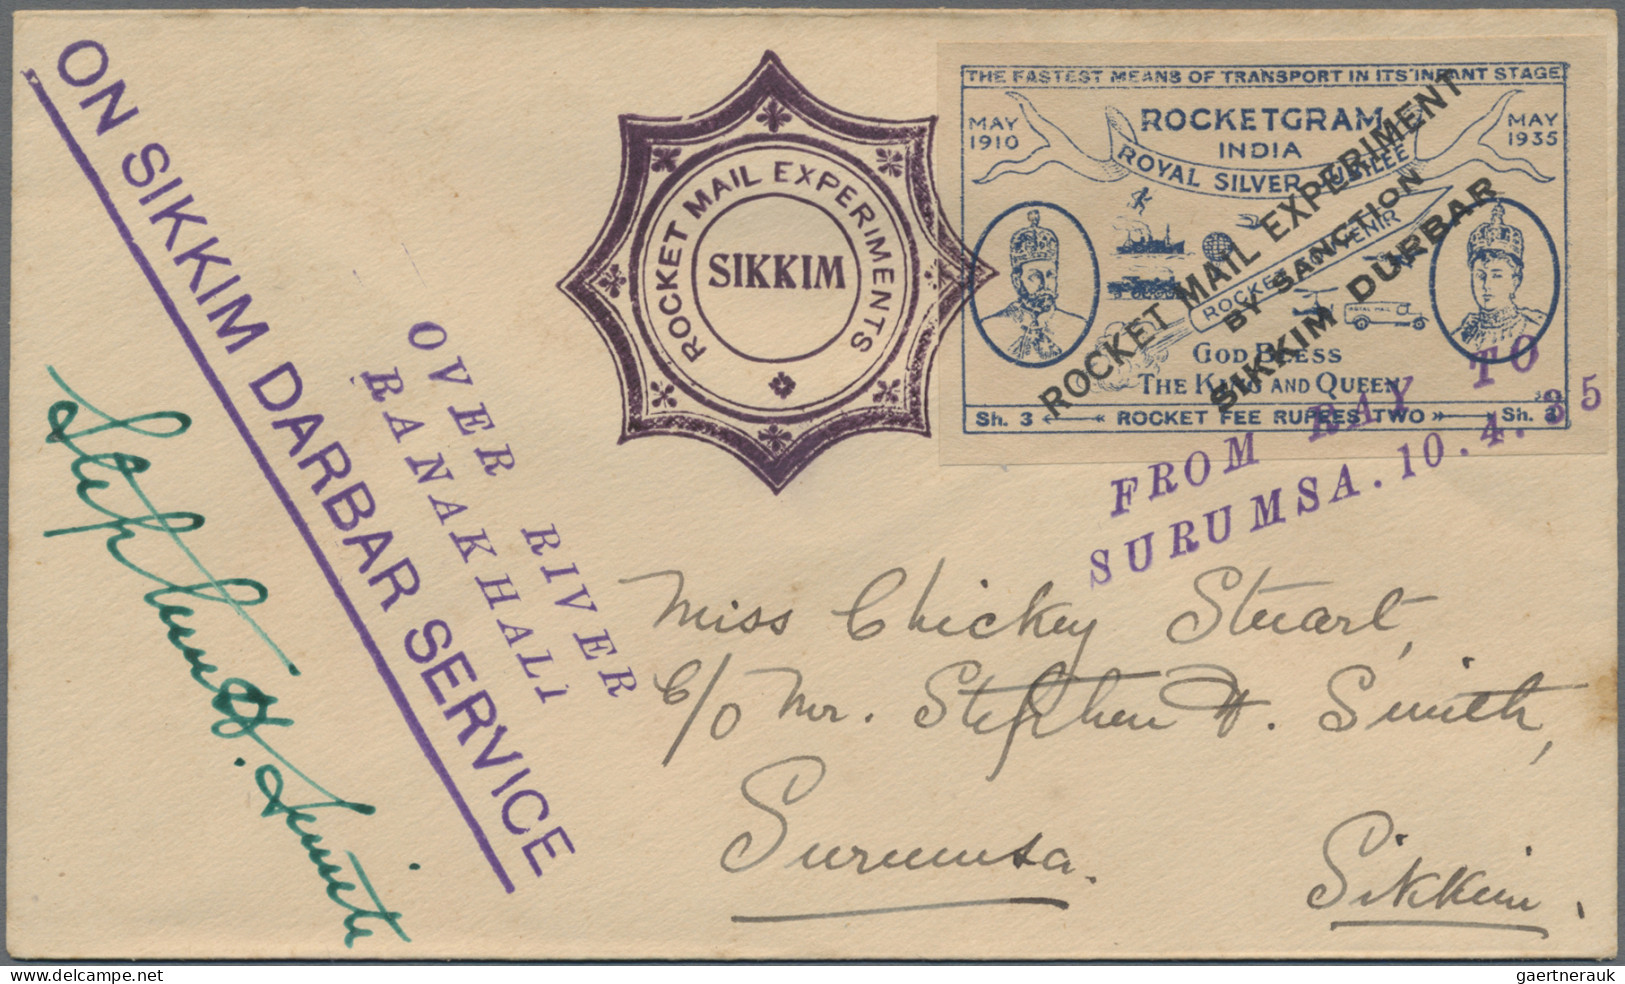 ON SIKKIM DARBAR SERVICE
OVER RIVER
RANAKHALI
ROCKET MAIL EXPERIMENTS
SIKKIM
THE FASTEST MEANS OF TRANSPORT IN ITS INFANT STAGE
MAY
1910
ROCKETGRAM
INDIA
ROYAL SILVER JUBILEE
MAY
1935
ROCKET SOUVENIR
ROYAL MAIL
GOD BLESS
THE KING AND QUEEN
Sh. 3 ROCKET FEE RUPEES TWO Sh. 3
ROCKET MAIL EXPERIMENT
BY SANCTION
SIKKIM DURBAR
FROM RAY TO
SURUMSA. 10. 4. 35
Miss Chickey Stuart,
C/o Mr. Stephen H. Smith,
Surumsa.
Sikkim.
Stephen H. Smith
delcampe.net
gaertnerauk